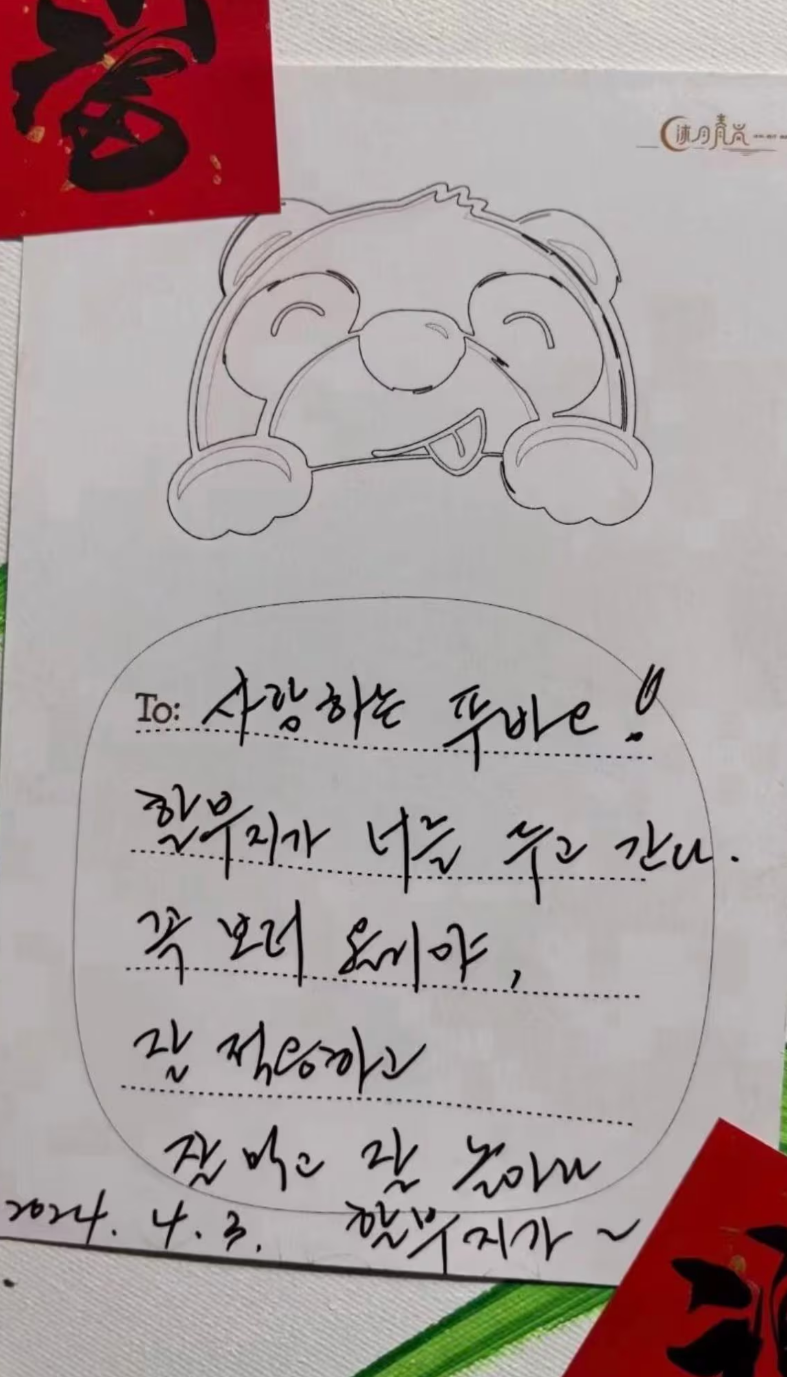 沐月青岚
To: 사랑하는 푸바오!
할부지가 너를 두고 간다.
꼭 보러 올거야,
잘 적응하고
잘 먹고 잘 놀아라
2024. 4. 3. 할부지가 ~